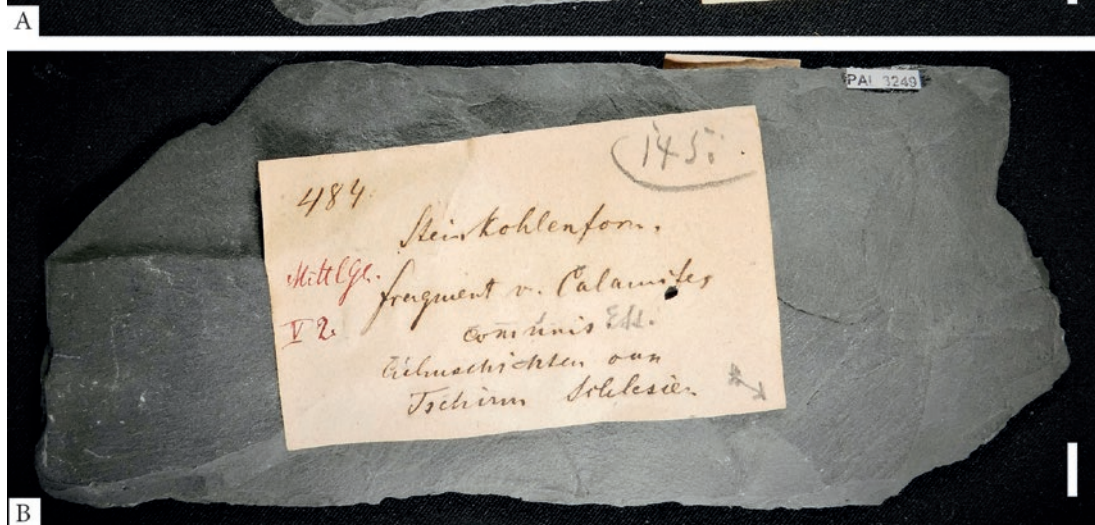 A
PAL 3249
145.
484.
Steinkohlenform.
Mittlge.
fragment v. Calamites
V 2.
communis Ett.
von
Tschirm Schlesien
B